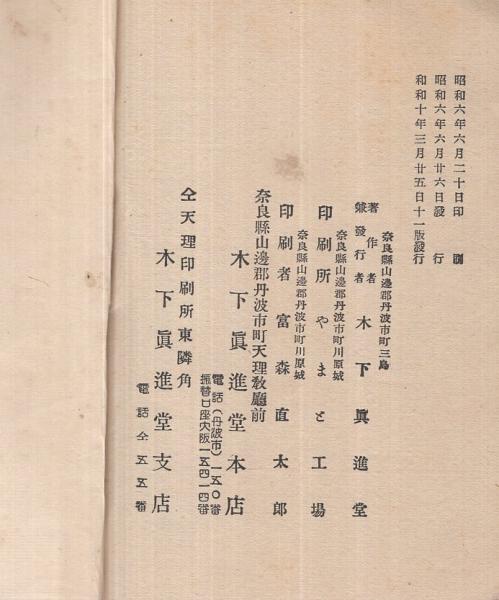 昭和六年六月二十日印刷
昭和六年六月廿六日發行
和和十年三月廿五日十一版發行
奈良縣山邊郡丹波市町三島
著作者
兼發行者 木下眞進堂
奈良縣山邊郡丹波市町川原城
印刷所 やまと工場
奈良縣山邊郡丹波市町川原城
印刷者 富森直太郎
奈良縣山邊郡丹波市町天理敎廳前
木下眞進堂本店
電話(丹波市)一五〇番
振替口座大阪一五四一四番
仝天理印刷所東隣角
木下眞進堂支店
電話仝五五番